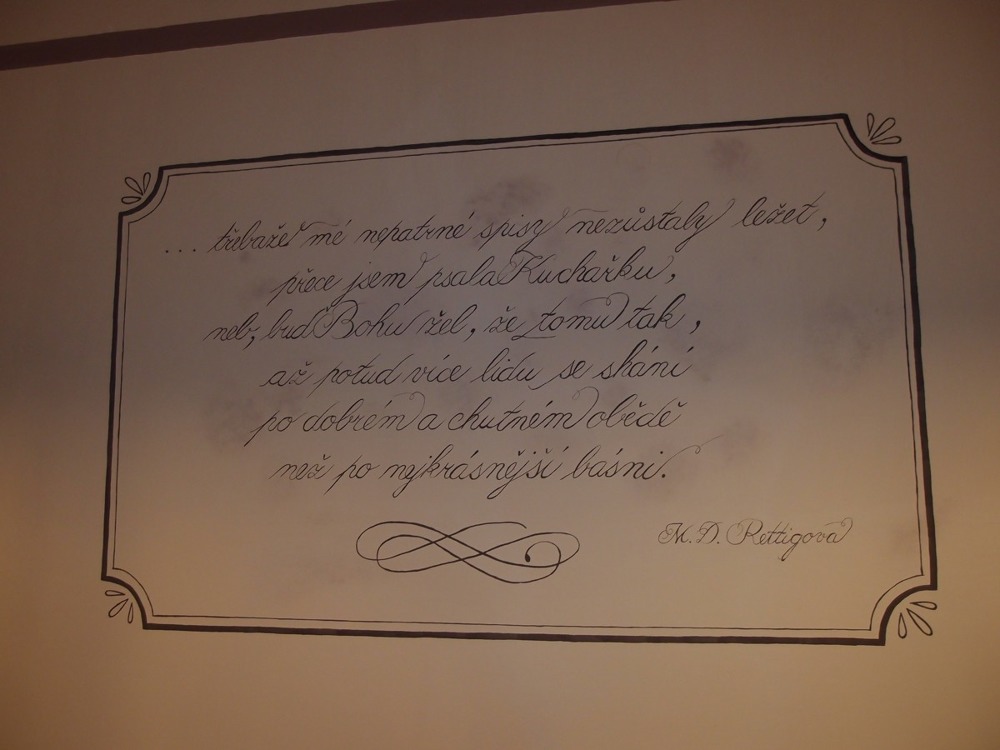 ... třebaže mé nepatrné spisy nezůstaly ležet,
přece jsem psala Kuchařku,
neb, buď Bohu žel, že tomu tak,
až potud více lidu se shání
po dobrém a chutném obědě
než po nejkrásnější básni.
M. D. Rettigová